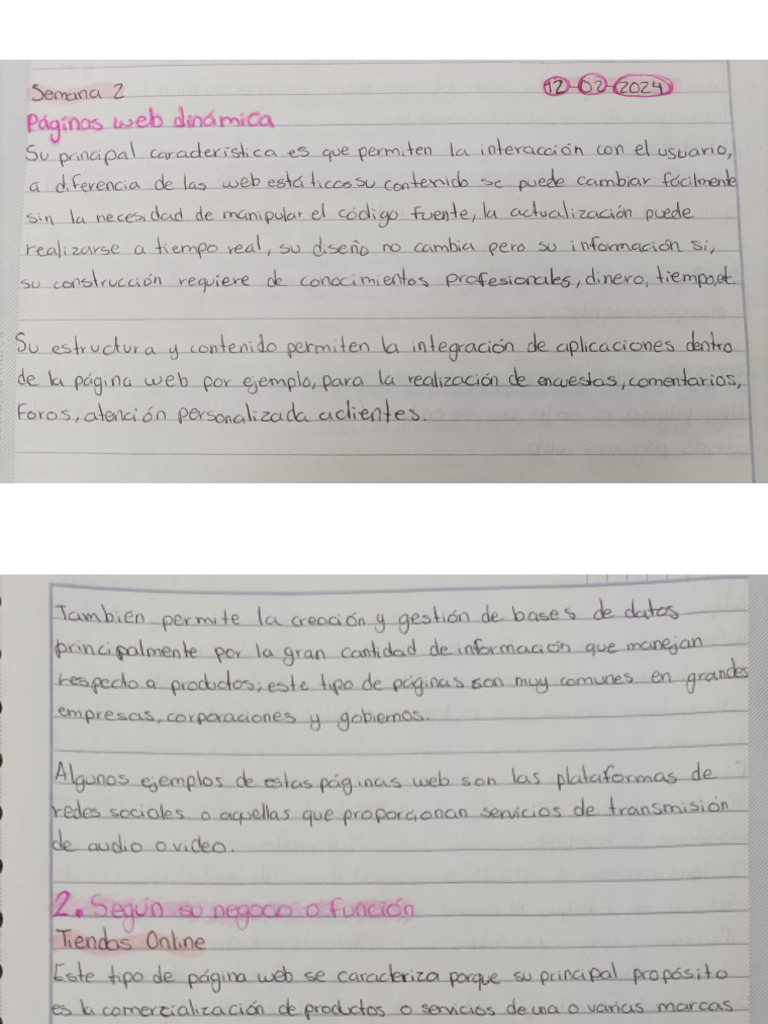 Semana 2 12-02-2024
Páginas web dinámica
Su principal característica es que permiten la interacción con el usuario,
a diferencia de las web estáticos su contenido se puede cambiar fácilmente
sin la necesidad de manipular el código fuente, la actualización puede
realizarse a tiempo real, su diseño no cambia pero su información si,
su construcción requiere de conocimientos profesionales, dinero, tiempo,et.
Su estructura y contenido permiten la integración de aplicaciones dentro
de la página web por ejemplo, para la realización de encuestas, comentarios,
Foros, atención personalizada a clientes.
También permite la creación y gestión de bases de datos
principalmente por la gran cantidad de información que manejan
respecto a productos; este tipo de páginas son muy comunes en grandes
empresas, corporaciones y gobiernos.
Algunos ejemplos de estas páginas web son las plataformas de
redes sociales o aquellas que proporcionan servicios de transmisión
de audio o video.
2. Según su negocio o función
Tiendas Online
Este tipo de página web se caracteriza porque su principal propósito
es la comercialización de productos o servicios de una o varias marcas